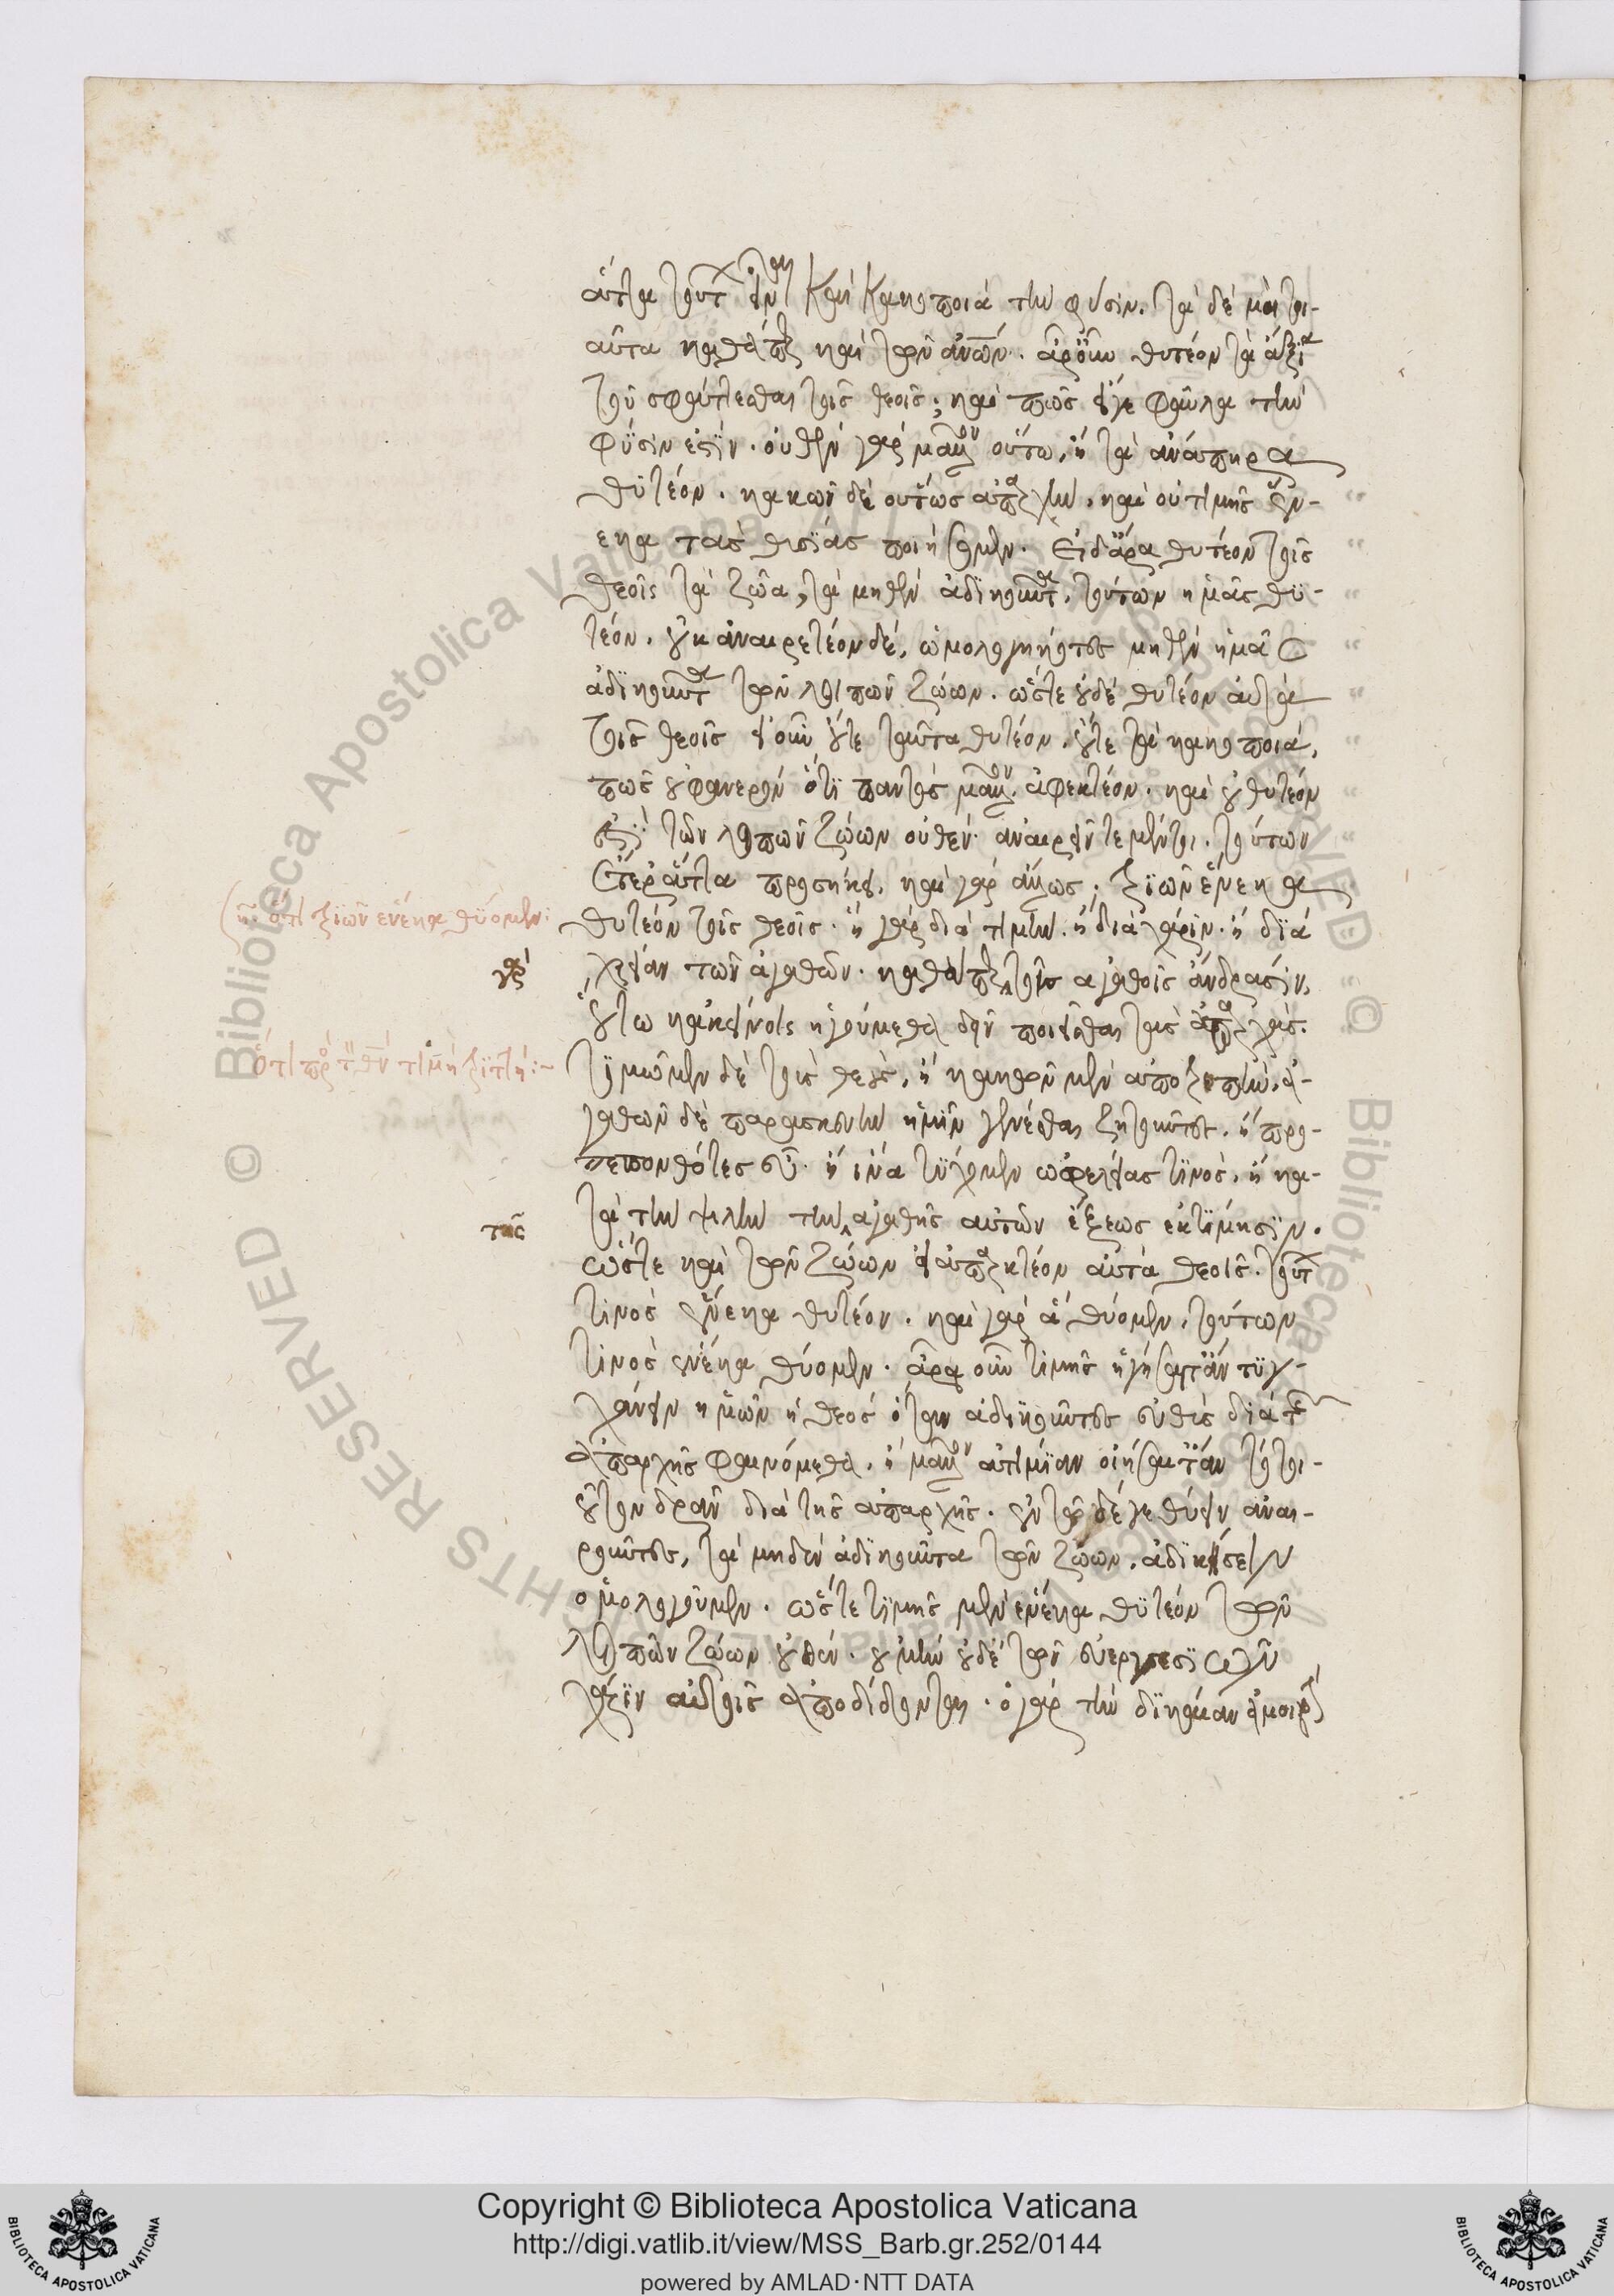 ἄττα τοῦτ' εἶναι καὶ κακοποιὰ τὴν φύσιν. τὰ δὲ μὴ τοι-
αῦτα καθάπερ καὶ τῶν ἀνων. ἆρ' οὖν θυτέον τὰ ἄξια
τοῦ σφάττεσθαι τοῖς θεοῖς; καὶ πῶς εἴγε φαῦλα τὴν
φύσιν ἐστίν. οὐθὲν γὰρ μᾶλλον οὕτω, ἢ τὰ ἀνάπηρα
θυτέον. κακῶν δὲ οὕτως ἀπαρχὴν, καὶ οὐ τιμῆς ἕν-
εκα τὰς θυσίας ποιήσομεν. εἰ δ' ἄρα θυτέον τοῖς
θεοῖς τὰ ζῶα, τὰ μηθὲν ἀδικοῦντα, τούτων ἡμᾶς θυ-
τέον. οὐκ ἀναιρετέον δὲ, ὡμολογηκότες μηθὲν ἡμᾶς
ἀδικοῦντα τῶν λοιπῶν ζώων. ὥστε οὐδὲ θυτέον αὐτὰ
τοῖς θεοῖς εἰ οὖν οὔτε ταῦτα θυτέον, οὔτε τὰ κακοποιά,
πῶς οὐ φανερὸν ὅτι παντὸς μᾶλλον ἀφεκτέον. καὶ οὐ θυτέον
ἐστὶ τῶν λοιπῶν ζώων οὐθέν. ἀναιρεῖν τε μέντοι τούτων
ἕτερ' ἄττα προσήκει. καὶ γὰρ ἄλλως, τριῶν ἕνεκα
θυτέον τοῖς θεοῖς. ἢ γὰρ διὰ τιμὴν. ἢ διὰ χάριν. ἢ διὰ
ὅτι τριῶν ἕνεκα θύομεν:
χρείαν τῶν ἀγαθῶν. καθάπερ τοῖς ἀγαθοῖς ἀνδράσιν,
γὰρ
οὕτω κἀκείνοις ἡγούμεθα δεῖν ποιεῖσθαι τὰς ἀπαρχάς.
τιμῶμεν δὲ τοὺς θεούς, ἢ κακῶν μὲν ἀποτροπὴν, ἀ-
ὅτι πρὸς τὸν θν τιμὴ τριττή:~
γαθῶν δὲ παρασκευὴν ἡμῖν γενέσθαι ζητοῦντες. ἢ προ-
πεπονθότες εὖ. ἢ ἵνα τύχωμεν ὠφελείας τινός. ἢ κα-
τὰ τὴν ψιλὴν τὴν ἀγαθῆς αὐτῶν ἕξεως ἐκτίμησιν.
τῆς
ὥστε καὶ τῶν ζώων εἰ ἀπαρκτέον αὐτὰ θεοῖς. τούτων
τινὸς ἕνεκα θυτέον. καὶ γὰρ ἃ θύομεν, τούτων
τινὸς ἕνεκα θύομεν. ἆρα οὖν τιμῆς ἡγήσαιτ' ἂν τυγ-
χάνειν ἡμῶν ἢ θεὸς ὅταν ἀδικοῦντες εὐθὺς διὰ τῆς
ἀπαρχῆς φαινώμεθα. ἢ μᾶλλον ἀτιμίαν οἰήσαιτ' ἂν τὸ τοι-
οῦτον δρᾶν διὰ τῆς ἀπαρχῆς. ἐν τῷ δέ γε θύειν ἀναι-
ροῦντες, τὰ μηδὲν ἀδικοῦντα τῶν ζώων. ἀδικήσειν
ὁμολογοῦμεν. ὥστε τιμῆς μὲν ἕνεκα θυτέον τῶν
λοιπῶν ζώων οὐθέν. οὐ μὴν οὐδὲ τῶν εὐεργεσιῶν
χάριν αὐτοῖς ἀποδίδονται. ὁ γὰρ τὴν δικαίαν ἀμοιβὴν